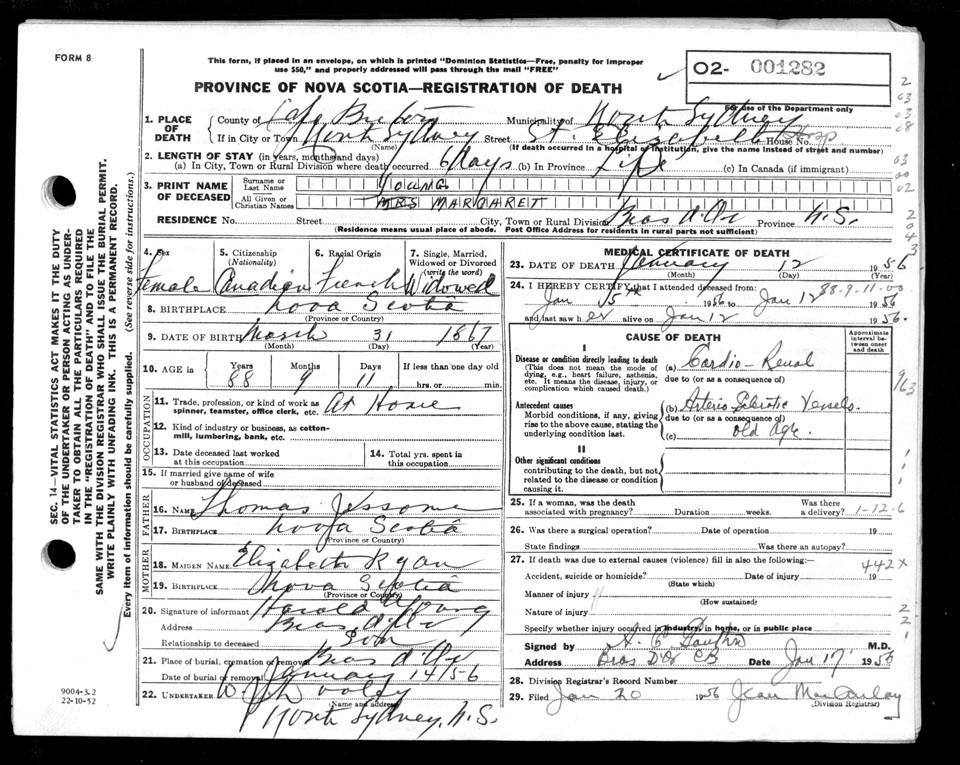 FORM 8
This form, if placed in an envelope, on which is printed "Dominion Statistics—Free, penalty for improper
use $50," and properly addressed will pass through the mail "FREE"
O2- 001282
For use of the Department only
PROVINCE OF NOVA SCOTIA—REGISTRATION OF DEATH
1. PLACE OF DEATH
County of Cape Breton Municipality of North Sydney
(Name)
If in City or Town North Sydney Street St. Elizabeth's House No. Hosp
(If death occurred in a hospital or institution, give the name instead of street and number)
2. LENGTH OF STAY (in years, months and days)
(a) In City, Town or Rural Division where death occurred 6 Days (b) In Province Life (c) In Canada (if immigrant)
3. PRINT NAME OF DECEASED
Surname or Last Name YOUNG
All Given or Christian Names MRS MARGARET
RESIDENCE No. Street City, Town or Rural Division Bras d'Or Province N.S.
(Residence means usual place of abode. Post Office Address for residents in rural parts not sufficient)
4. Sex Female
5. Citizenship (Nationality) Canadian
6. Racial Origin French
7. Single, Married, Widowed or Divorced (write the word) Widowed
8. BIRTHPLACE Nova Scotia
(Province or Country)
9. DATE OF BIRTH March 31 1867
(Month) (Day) (Year)
10. AGE in Years Months Days If less than one day old
88 9 11 hrs. or min.
OCCUPATION
11. Trade, profession, or kind of work as spinner, teamster, office clerk, etc. At Home
12. Kind of industry or business, as cotton-mill, lumbering, bank, etc.
13. Date deceased last worked at this occupation
14. Total yrs. spent in this occupation
15. If married give name of wife or husband of deceased
FATHER
16. NAME Thomas Jessome
17. BIRTHPLACE Nova Scotia
(Province or Country)
MOTHER
18. MAIDEN NAME Elizabeth Ryan
19. BIRTHPLACE Nova Scotia
(Province or Country)
20. Signature of informant Harold Young
Address Bras d'Or
Relationship to deceased Son
21. Place of burial, cremation or removal Bras d'Or
Date of burial or removal January 14/56
22. UNDERTAKER W. Dooley
(Name and address)
North Sydney, N.S.
MEDICAL CERTIFICATE OF DEATH
23. DATE OF DEATH January 12 1956
(Month) (Day) (Year)
24. I HEREBY CERTIFY that I attended deceased from:
Jan 5th 1956 to Jan 12 1956
88-9-11-00
and last saw her alive on Jan 12 1956.
CAUSE OF DEATH
Approximate interval between onset and death
I
Disease or condition directly leading to death
(This does not mean the mode of dying, e.g., heart failure, asthenia, etc. It means the disease, injury, or complication which caused death.)
(a) Cardio-Renal
due to (or as a consequence of)
Antecedent causes
Morbid conditions, if any, giving rise to the above cause, stating the underlying condition last.
(b) Arterio Sclerotic Vessels
due to (or as a consequence of)
(c) old age.
II
Other significant conditions
contributing to the death, but not related to the disease or condition causing it.
25. If a woman, was the death associated with pregnancy? Duration weeks. Was there a delivery? 1-12-6
26. Was there a surgical operation? Date of operation 19
State findings Was there an autopsy?
27. If death was due to external causes (violence) fill in also the following:—
442X
Accident, suicide or homicide? Date of injury 19
(State which)
Manner of injury
(How sustained)
Nature of injury
Specify whether injury occurred in industry, in home, or in public place
Signed by M.D.
Address Bras D'Or CB Date Jan 17 1956
28. Division Registrar's Record Number
29. Filed Jan 20 1956 Jean MacAulay
(Division Registrar)
SEC. 14—VITAL STATISTICS ACT MAKES IT THE DUTY
OF THE UNDERTAKER OR PERSON ACTING AS UNDER-
TAKER TO OBTAIN ALL THE PARTICULARS REQUIRED
IN THE "REGISTRATION OF DEATH" AND TO FILE THE
SAME WITH THE DIVISION REGISTRAR WHO SHALL ISSUE THE BURIAL PERMIT.
WRITE PLAINLY WITH UNFADING INK. THIS IS A PERMANENT RECORD.
Every item of information should be carefully supplied. (See reverse side for instructions.)
9004-3.2
22-10-52